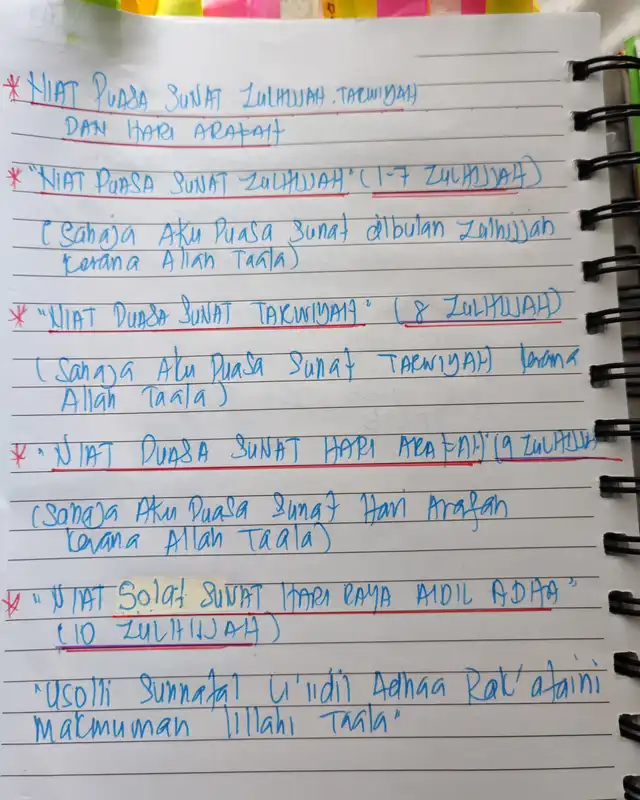 * NIAT PUASA SUNAT ZULHIJJAH. TARWIYAH
DAN HARI ARAFAH
* "NIAT PUASA SUNAT ZULHIJJAH" (1-7 ZULHIJJAH)
(Sahaja Aku Puasa Sunat dibulan Zulhijjah
kerana Allah Taala)
* "NIAT PUASA SUNAT TARWIYAH" (8 ZULHIJJAH)
(Sahaja Aku Puasa Sunat TARWIYAH kerana
Allah Taala)
* "NIAT PUASA SUNAT HARI ARAFAH" (9 ZULHIJJAH
(Sahaja Aku Puasa Sunat Hari Arafah
kerana Allah Taala)
* "NIAT Solat SUNAT HARI RAYA AIDIL ADHA"
(10 ZULHIJJAH)
"Usolli Sunnatal li'iidil Adhaa Rak'ataini
makmuman lillahi Taala"